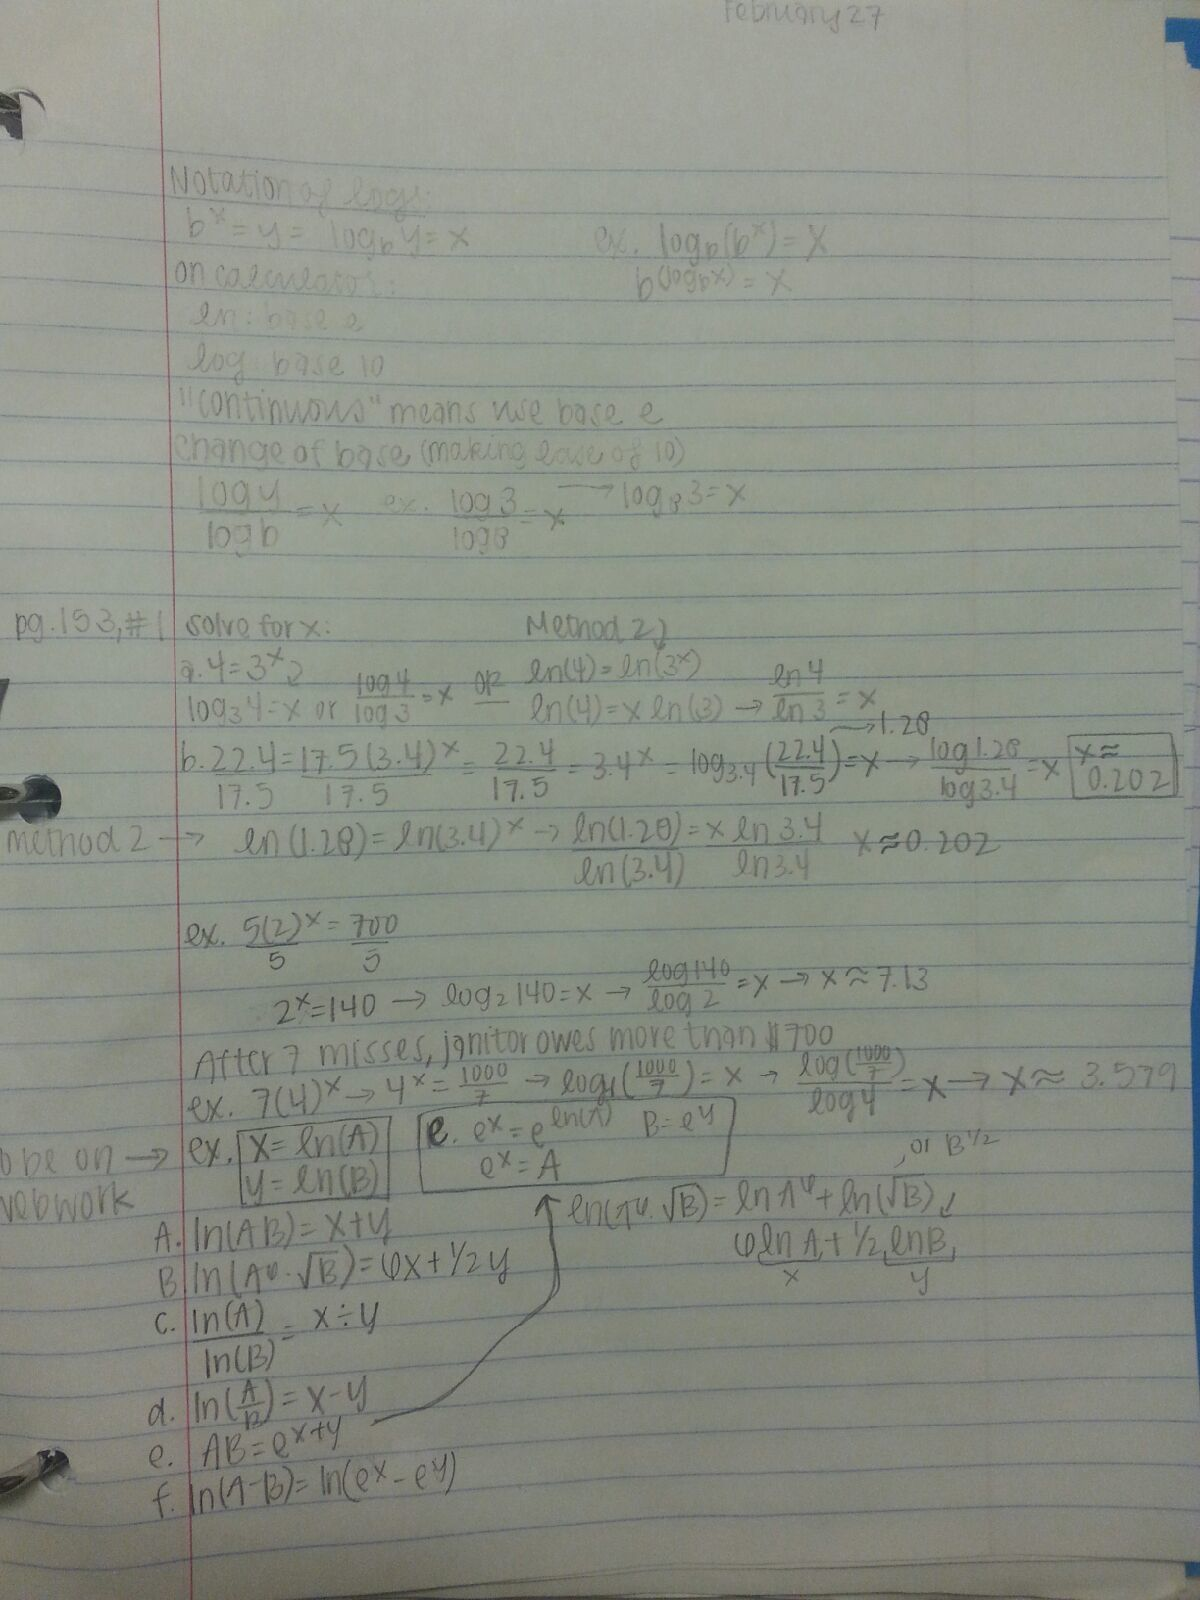 February 27
Notation of logs:
b^x = y = log_b y = x    ex. log_b(b^x) = x
b^(log_b x) = x
on calculator:
ln: base e
log: base 10
"continuous" means use base e
Change of base (making base of 10)
log y / log b = x    ex. log 3 / log 8 = x → log_8 3 = x
pg. 153, #1 solve for x:    Method 2
a. 4 = 3^x    ln(4) = ln(3^x)
log_3 4 = x or log 4 / log 3 = x OR ln(4) = x ln(3) → ln 4 / ln 3 = x
b. 22.4 / 17.5 = 17.5(3.4)^x / 17.5 = 22.4 / 17.5 = 3.4^x = log_3.4 (22.4 / 17.5) → 1.28 = x → log 1.28 / log 3.4 = x    x ≈ 0.202
Method 2 → ln(1.28) = ln(3.4)^x → ln(1.28) / ln(3.4) = x ln 3.4 / ln 3.4    x ≈ 0.202
ex. 5(2)^x / 5 = 700 / 5
2^x = 140 → log_2 140 = x → log 140 / log 2 = x → x ≈ 7.13
After 7 misses, janitor owes more than $700
ex. 7(4)^x → 4^x = 1000/7 → log_4(1000/7) = x → log(1000/7) / log 4 = x → x ≈ 3.579
be on → ex. x = ln(A)    e. e^x = e^ln(A)    B = e^y
webwork    y = ln(B)    e^x = A
, or B^1/2
ln(A^6 · √B) = ln A^6 + ln(√B)
6 ln A + 1/2 ln B
x    y
A. ln(AB) = x + y
B ln(A^6 · √B) = 6x + 1/2 y
c. ln(A) / ln(B) = x ÷ y
d. ln(A/B) = x - y
e. AB = e^x+y
f. ln(A-B) = ln(e^x - e^y)